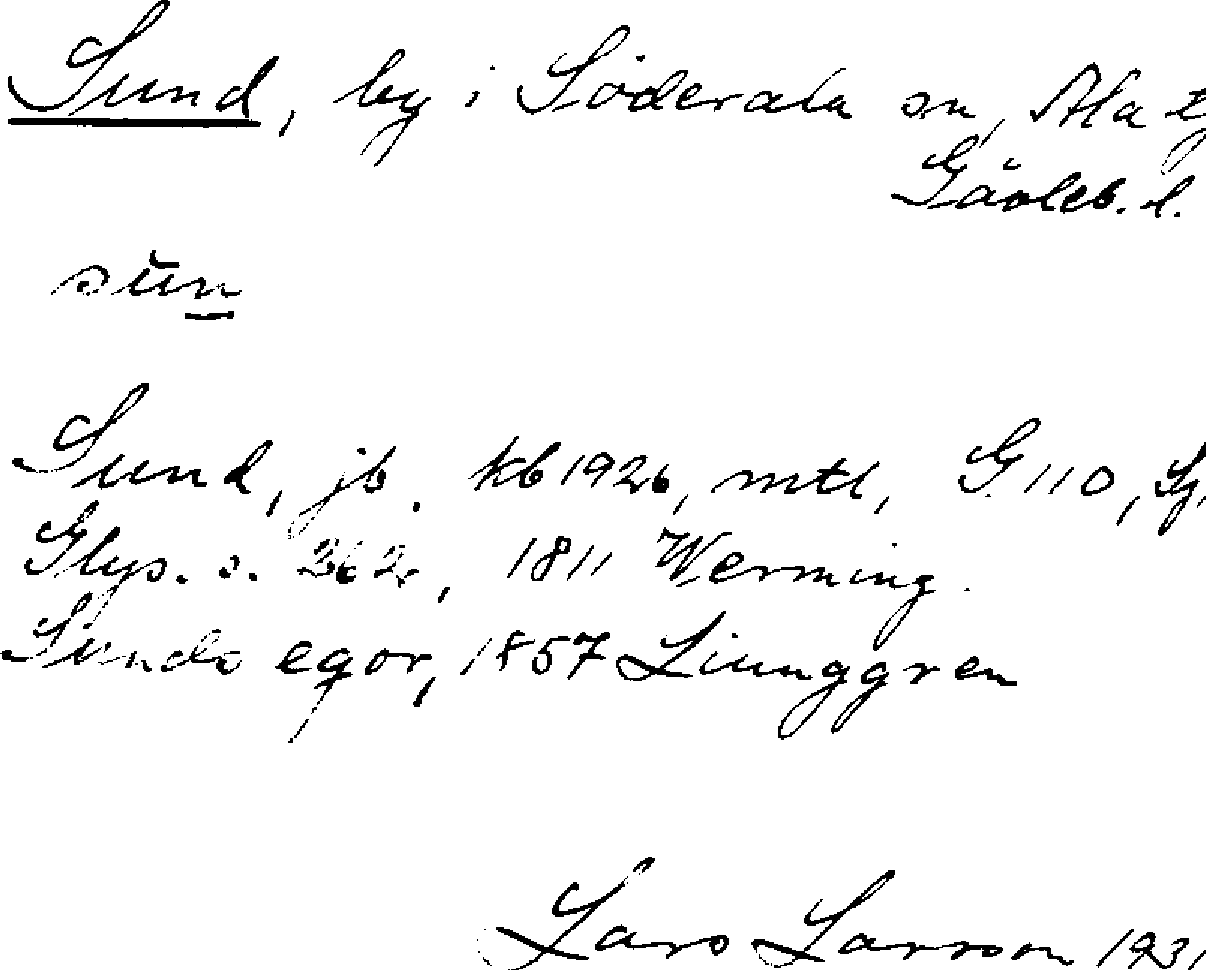 Sund, by i Söderala sn, Ala t
Gävleb. l.
sŭn
Sund, jb. kb 1926, mtl, G 110,
Glys. s. 362, 1811 Werming.
Sunds egor, 1857 Liunggren
Lars Larsson 1931